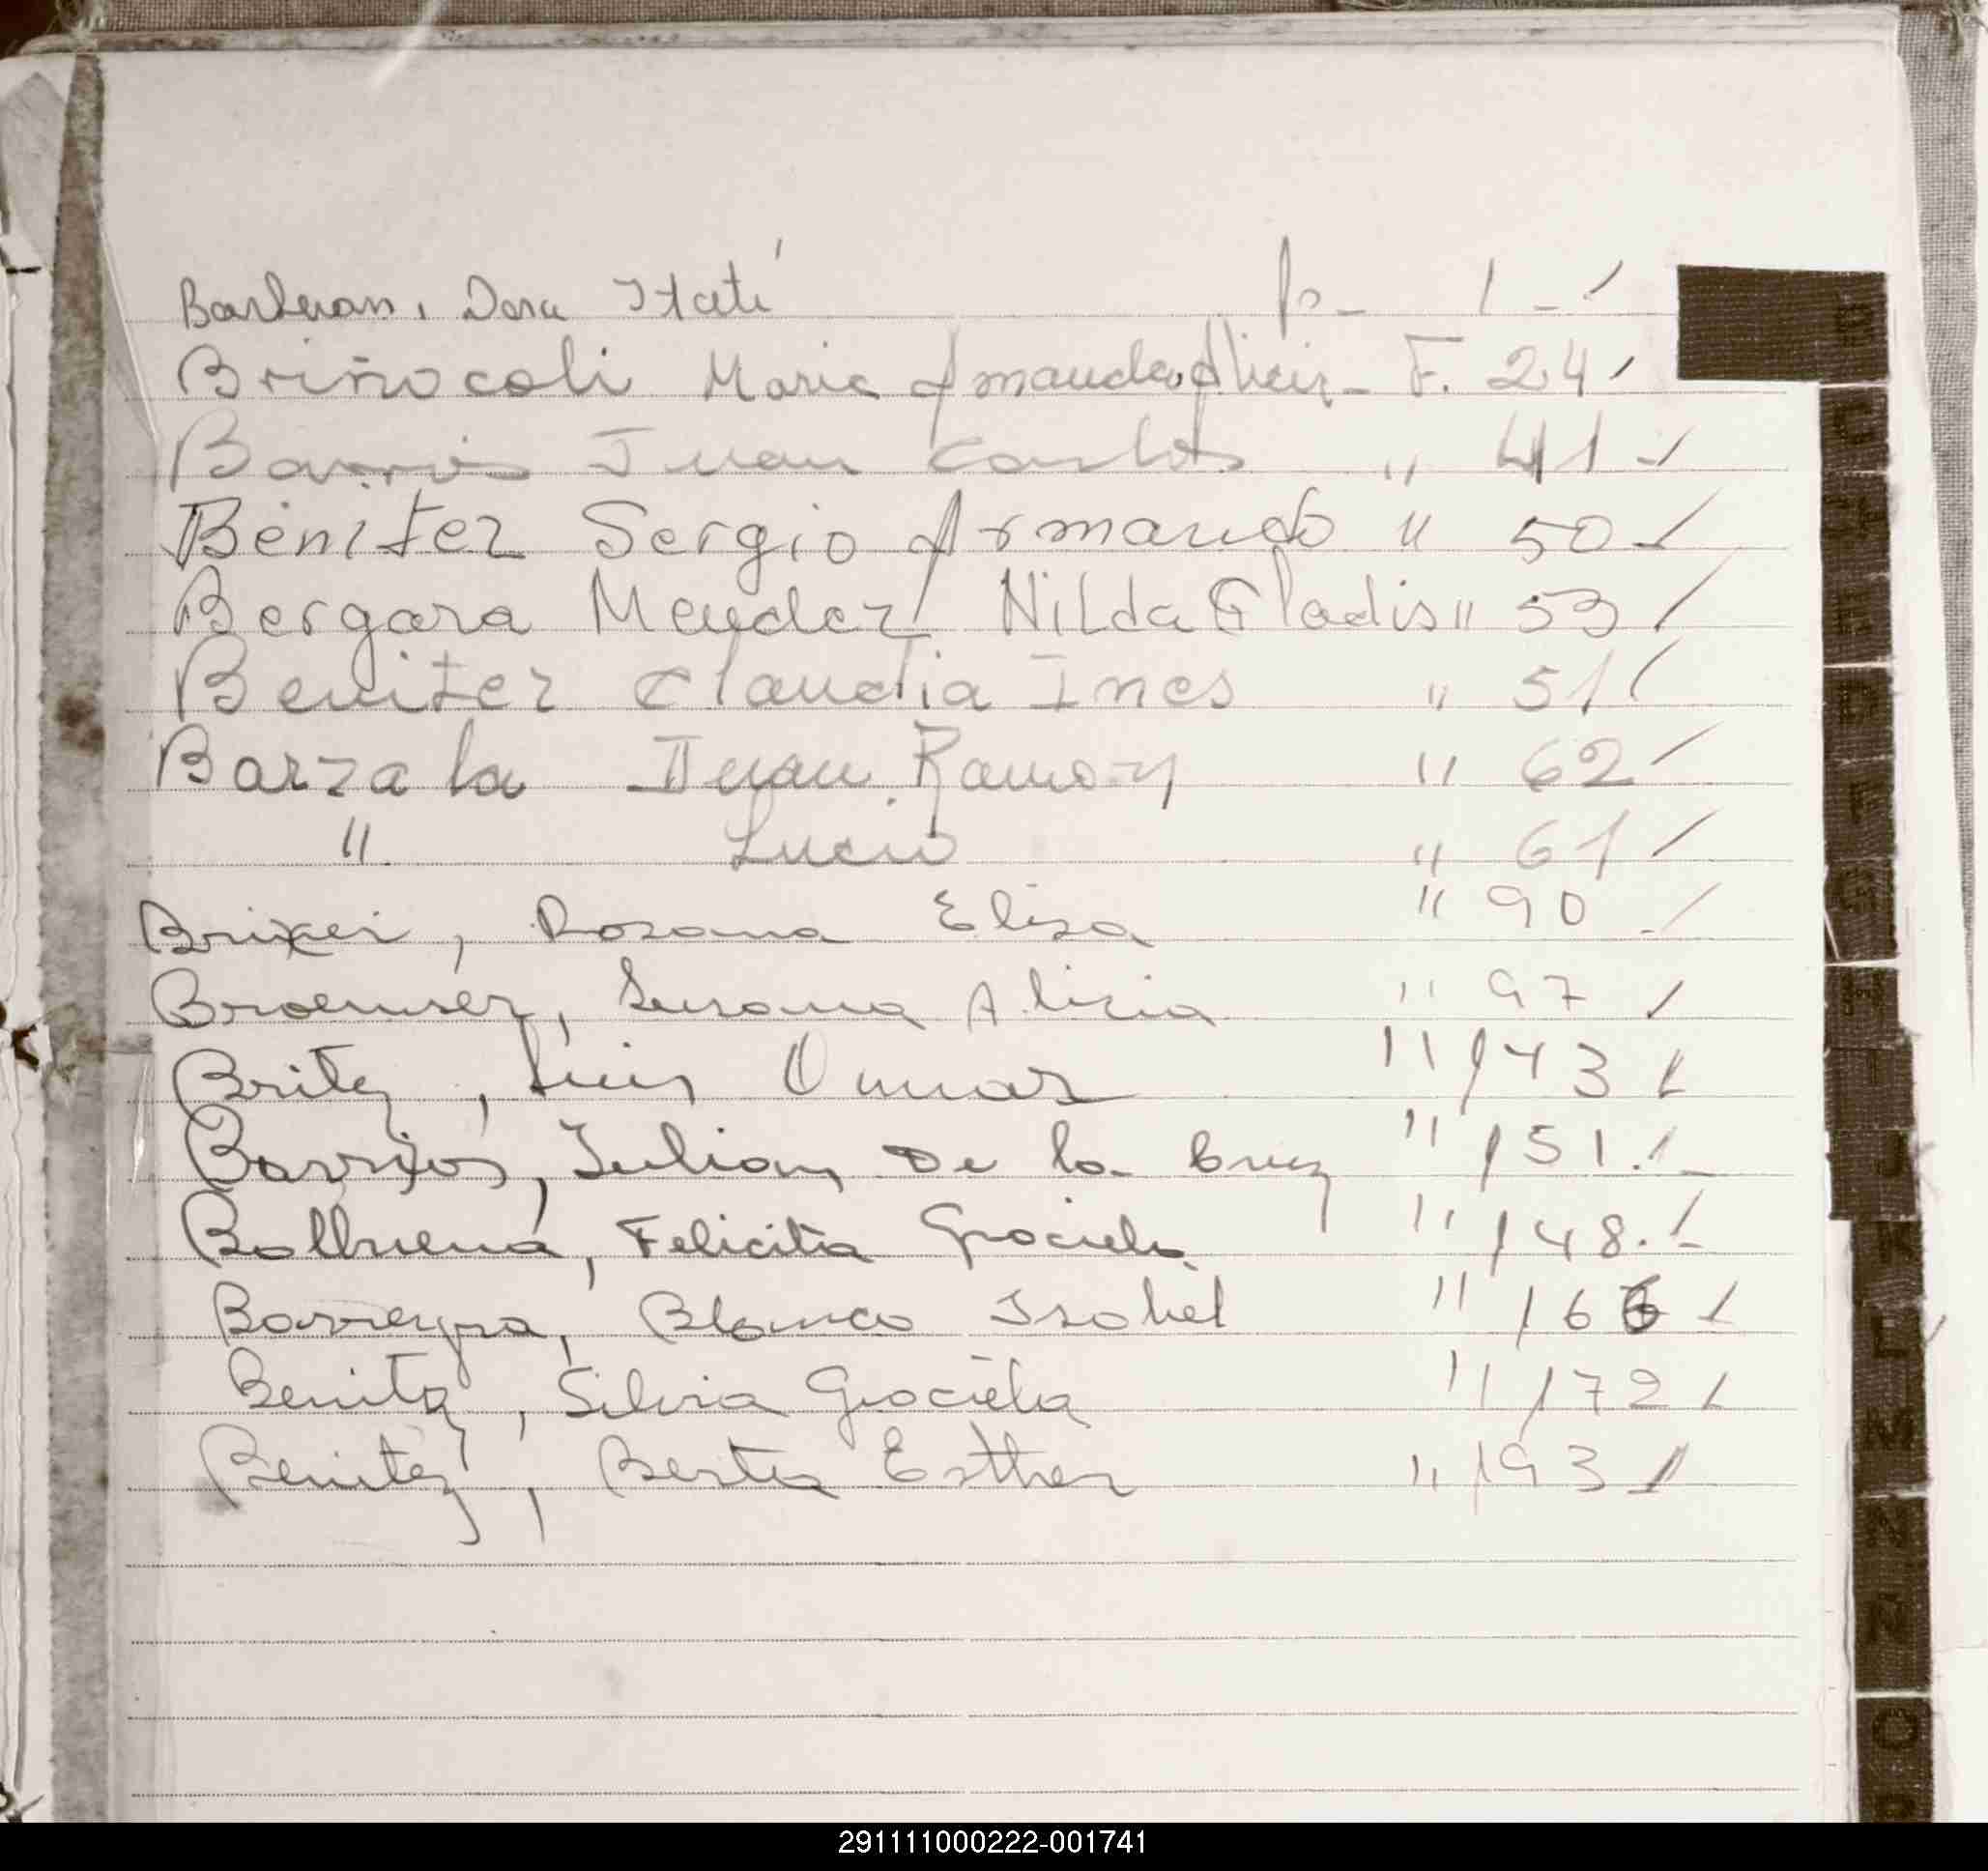 Barberan, Dora Itatí Fo- 1 -
Briñocoli Maria Amanda Alicia - F. 24
Barrios Juan Carlos " 41
Benitez Sergio Armando " 50
Bergara Mendez Nilda Gladis " 53
Benitez Claudia Ines " 51
Barzala Juan Ramon " 62
" Lucio " 61
Brixei, Rosana Elisa " 90
Broemser, Susana Alicia " 97
Britz, Luis Omar " 143
Barrios, Julian De la Cruz " 151.
Balbuena, Felicitia Graciela " 148.
Barreyra, Blanca Isabel " 166
Benitez, Silvia Graciela " 172
Benitez, Berta Esther " 193
B
C
E
F
G
H
I
J
K
L
M
N
Ñ
O
P
291111000222-001741